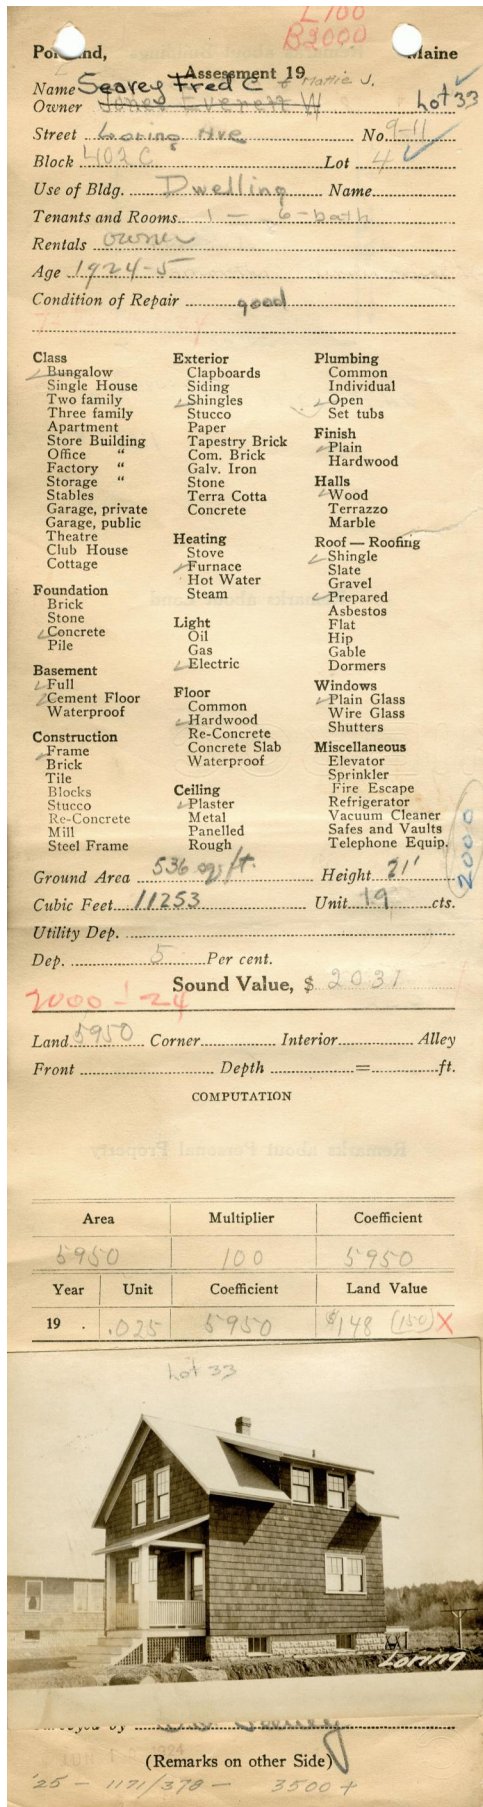 L100
B2000
Portland, Maine
Assessment 19
Name Searey Fred C & Mattie J.
Owner Jones Everett W Lot 33
Street Loring Ave No. 9-11
Block 402 C Lot 4
Use of Bldg. Dwelling Name
Tenants and Rooms 1 — 6-bath
Rentals owner
Age 1924-5
Condition of Repair good
Class
Bungalow
Single House
Two family
Three family
Apartment
Store Building
Office "
Factory "
Storage "
Stables
Garage, private
Garage, public
Theatre
Club House
Cottage
Foundation
Brick
Stone
Concrete
Pile
Basement
Full
Cement Floor
Waterproof
Construction
Frame
Brick
Tile
Blocks
Stucco
Re-Concrete
Mill
Steel Frame
Exterior
Clapboards
Siding
Shingles
Stucco
Paper
Tapestry Brick
Com. Brick
Galv. Iron
Stone
Terra Cotta
Concrete
Heating
Stove
Furnace
Hot Water
Steam
Light
Oil
Gas
Electric
Floor
Common
Hardwood
Re-Concrete
Concrete Slab
Waterproof
Ceiling
Plaster
Metal
Panelled
Rough
Plumbing
Common
Individual
Open
Set tubs
Finish
Plain
Hardwood
Halls
Wood
Terrazzo
Marble
Roof — Roofing
Shingle
Slate
Gravel
Prepared
Asbestos
Flat
Hip
Gable
Dormers
Windows
Plain Glass
Wire Glass
Shutters
Miscellaneous
Elevator
Sprinkler
Fire Escape
Refrigerator
Vacuum Cleaner
Safes and Vaults
Telephone Equip.
2000
Ground Area 536 sq ft. Height 21'
Cubic Feet 11253 Unit 19 cts.
Utility Dep.
Dep. 5 Per cent.
Sound Value, $ 2031
2000 - '24
Land 5950 Corner Interior Alley
Front Depth = ft.
COMPUTATION
Area Multiplier Coefficient
5950 100 5950
Year Unit Coefficient Land Value
19 . .025 5950 $148 (150) X
Lot 33
Loring
Surveyed by
(Remarks on other Side)
'25 - 1171/378 - 3500 +